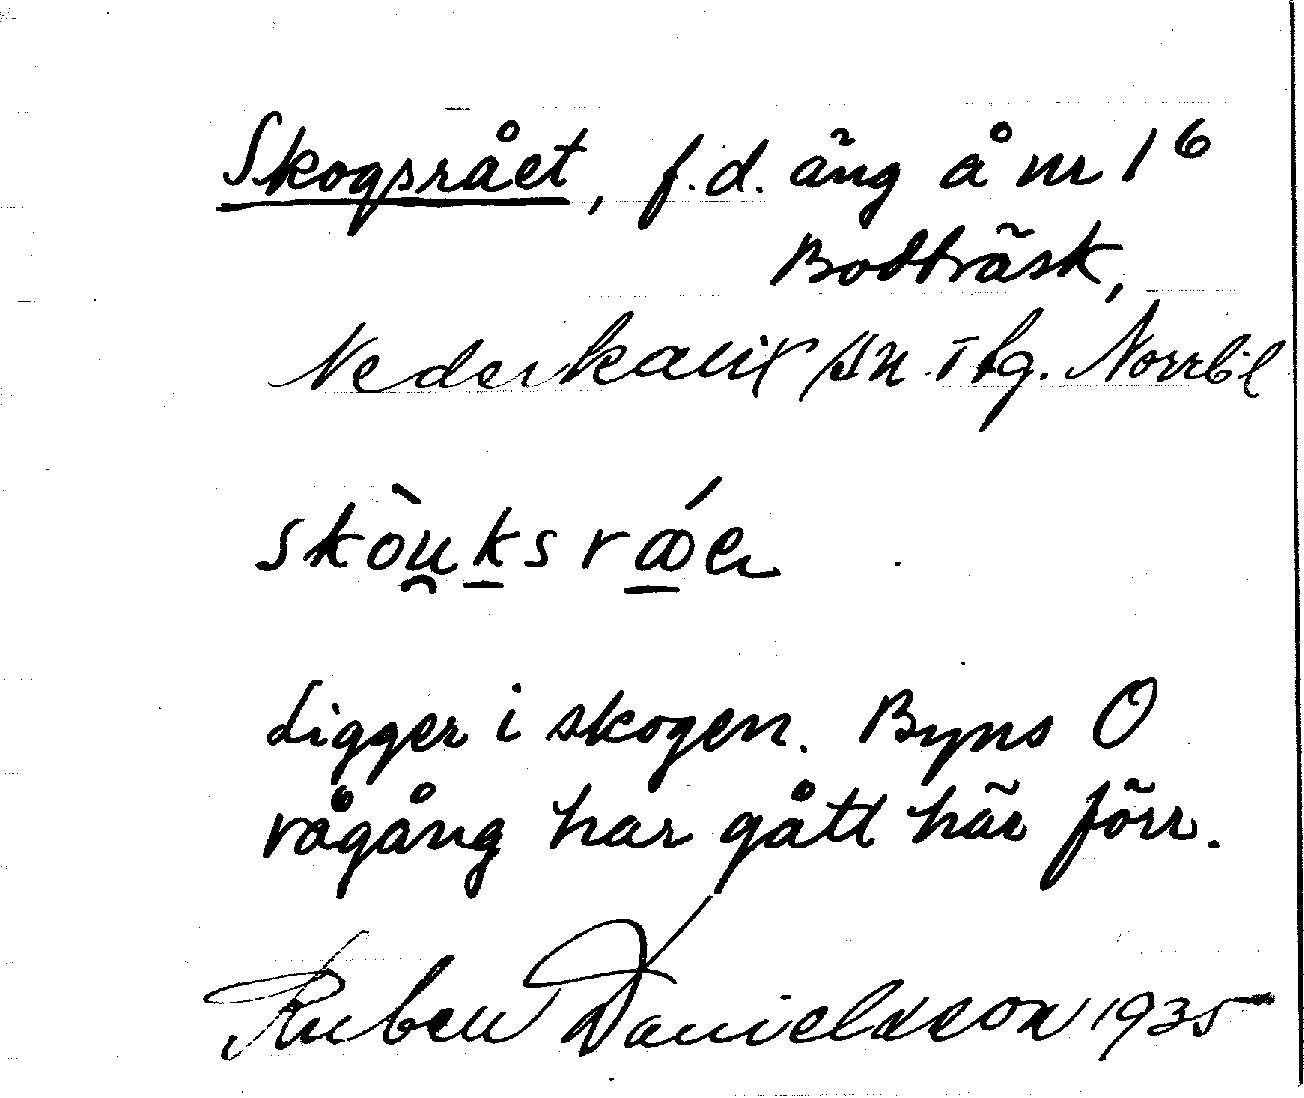 Skogsrået, f.d. äng å nr 1⁶
Bodträsk,
Nederkalix sn Tlg. Norrb.l
skòu̯k̠srǽ̠e
Ligger i skogen. Byns O
rågång har gått här förr.
Ruben Danielsson 1935